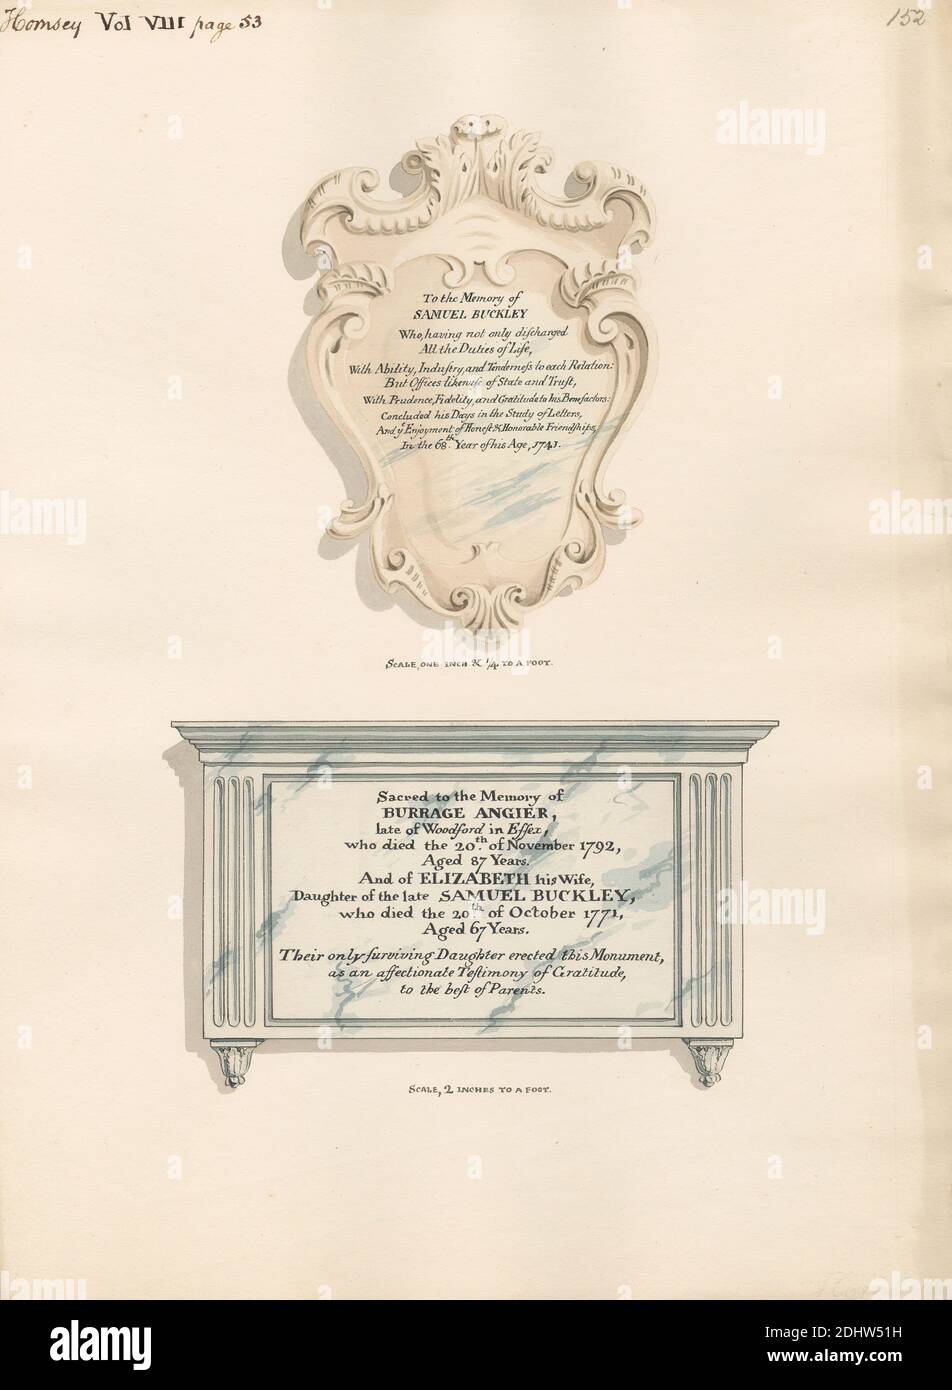 Hornsey Vol VIII page 53
152
To the Memory of
SAMUEL BUCKLEY
Who, having not only diſcharged
All the Duties of Life,
With Ability, Induſtry, and Tenderneſs to each Relation:
But Offices likewiſe of State and Truſt,
With Prudence, Fidelity, and Gratitude to his Benefactors:
Concluded his Days in the Study of Letters,
And yͤ Enjoyment of Honeſt & Honorable Friendſhips,
In the 68.th Year of his Age, 1741.
SCALE, ONE INCH & 1/4 TO A FOOT.
Sacred to the Memory of
BURRAGE ANGIER,
late of Woodford in Eſſex,
who died the 20.th of November 1792,
Aged 87 Years.
And of ELIZABETH his Wife,
Daughter of the late SAMUEL BUCKLEY,
who died the 20th of October 1771,
Aged 67 Years.
Their only ſurviving Daughter erected this Monument,
as an affectionate Teſtimony of Gratitude,
to the beſt of Parents.
SCALE, 2 INCHES TO A FOOT.
alamy
alamy
alamy
alamy
alamy
alamy
alamy
Image ID: 2DHW51H
www.alamy.com